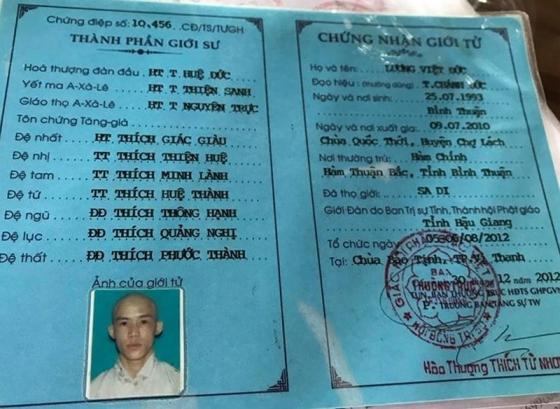 Chứng điệp số: 10.456 CĐ/TS/TƯGH
THÀNH PHẦN GIỚI SƯ
Hoà thượng đàn đầu HT T. HUỆ ĐỨC
Yết ma A-Xà-Lê HT T THIỆN SANH
Giáo thọ A-Xà-Lê HT T NGUYÊN TRỰC
Tôn chứng Tăng-già
Đệ nhất HT THÍCH GIÁC GIÀU
Đệ nhị TT THÍCH THIỆN HUỆ
Đệ tam TT THÍCH MINH LÀNH
Đệ tứ TT THÍCH HUỆ THÀNH
Đệ ngũ ĐĐ THÍCH THÔNG HẠNH
Đệ lục ĐĐ THÍCH QUẢNG NGHỊ
Đệ thất ĐĐ THÍCH PHƯỚC THÀNH
Ảnh của giới tử
CHỨNG NHẬN GIỚI TỬ
Họ và tên: LƯƠNG VIỆT ĐỨC
Đạo hiệu: (thường dùng) T. CHÁNH ĐỨC
Ngày và nơi sinh: 25.07.1993
Bình Thuận
Ngày và nơi xuất gia: 09.07.2010
Chùa Quốc Thới, Huyện Chợ Lách
Nơi thường trú: Hàm Chính
Hàm Thuận Bắc, Tỉnh Bình Thuận
Đã thọ giới: SA DI
Giới Đàn do Ban Trị sự Tỉnh, Thành hội Phật giáo
Tỉnh Hậu Giang
Tổ chức ngày 05-06/08/2012
Tại: Chùa Bảo Tịnh, TP.Vị Thanh
12 năm 2012
TUN. BAN THƯỜNG TRỰC HĐTS GHPGVN
P. TRƯỞNG BAN TĂNG SỰ TW
BAN
THƯỜNG TRỰC
HỘI ĐỒNG TRỊ SỰ
Hòa Thượng THÍCH TỪ NHƠN